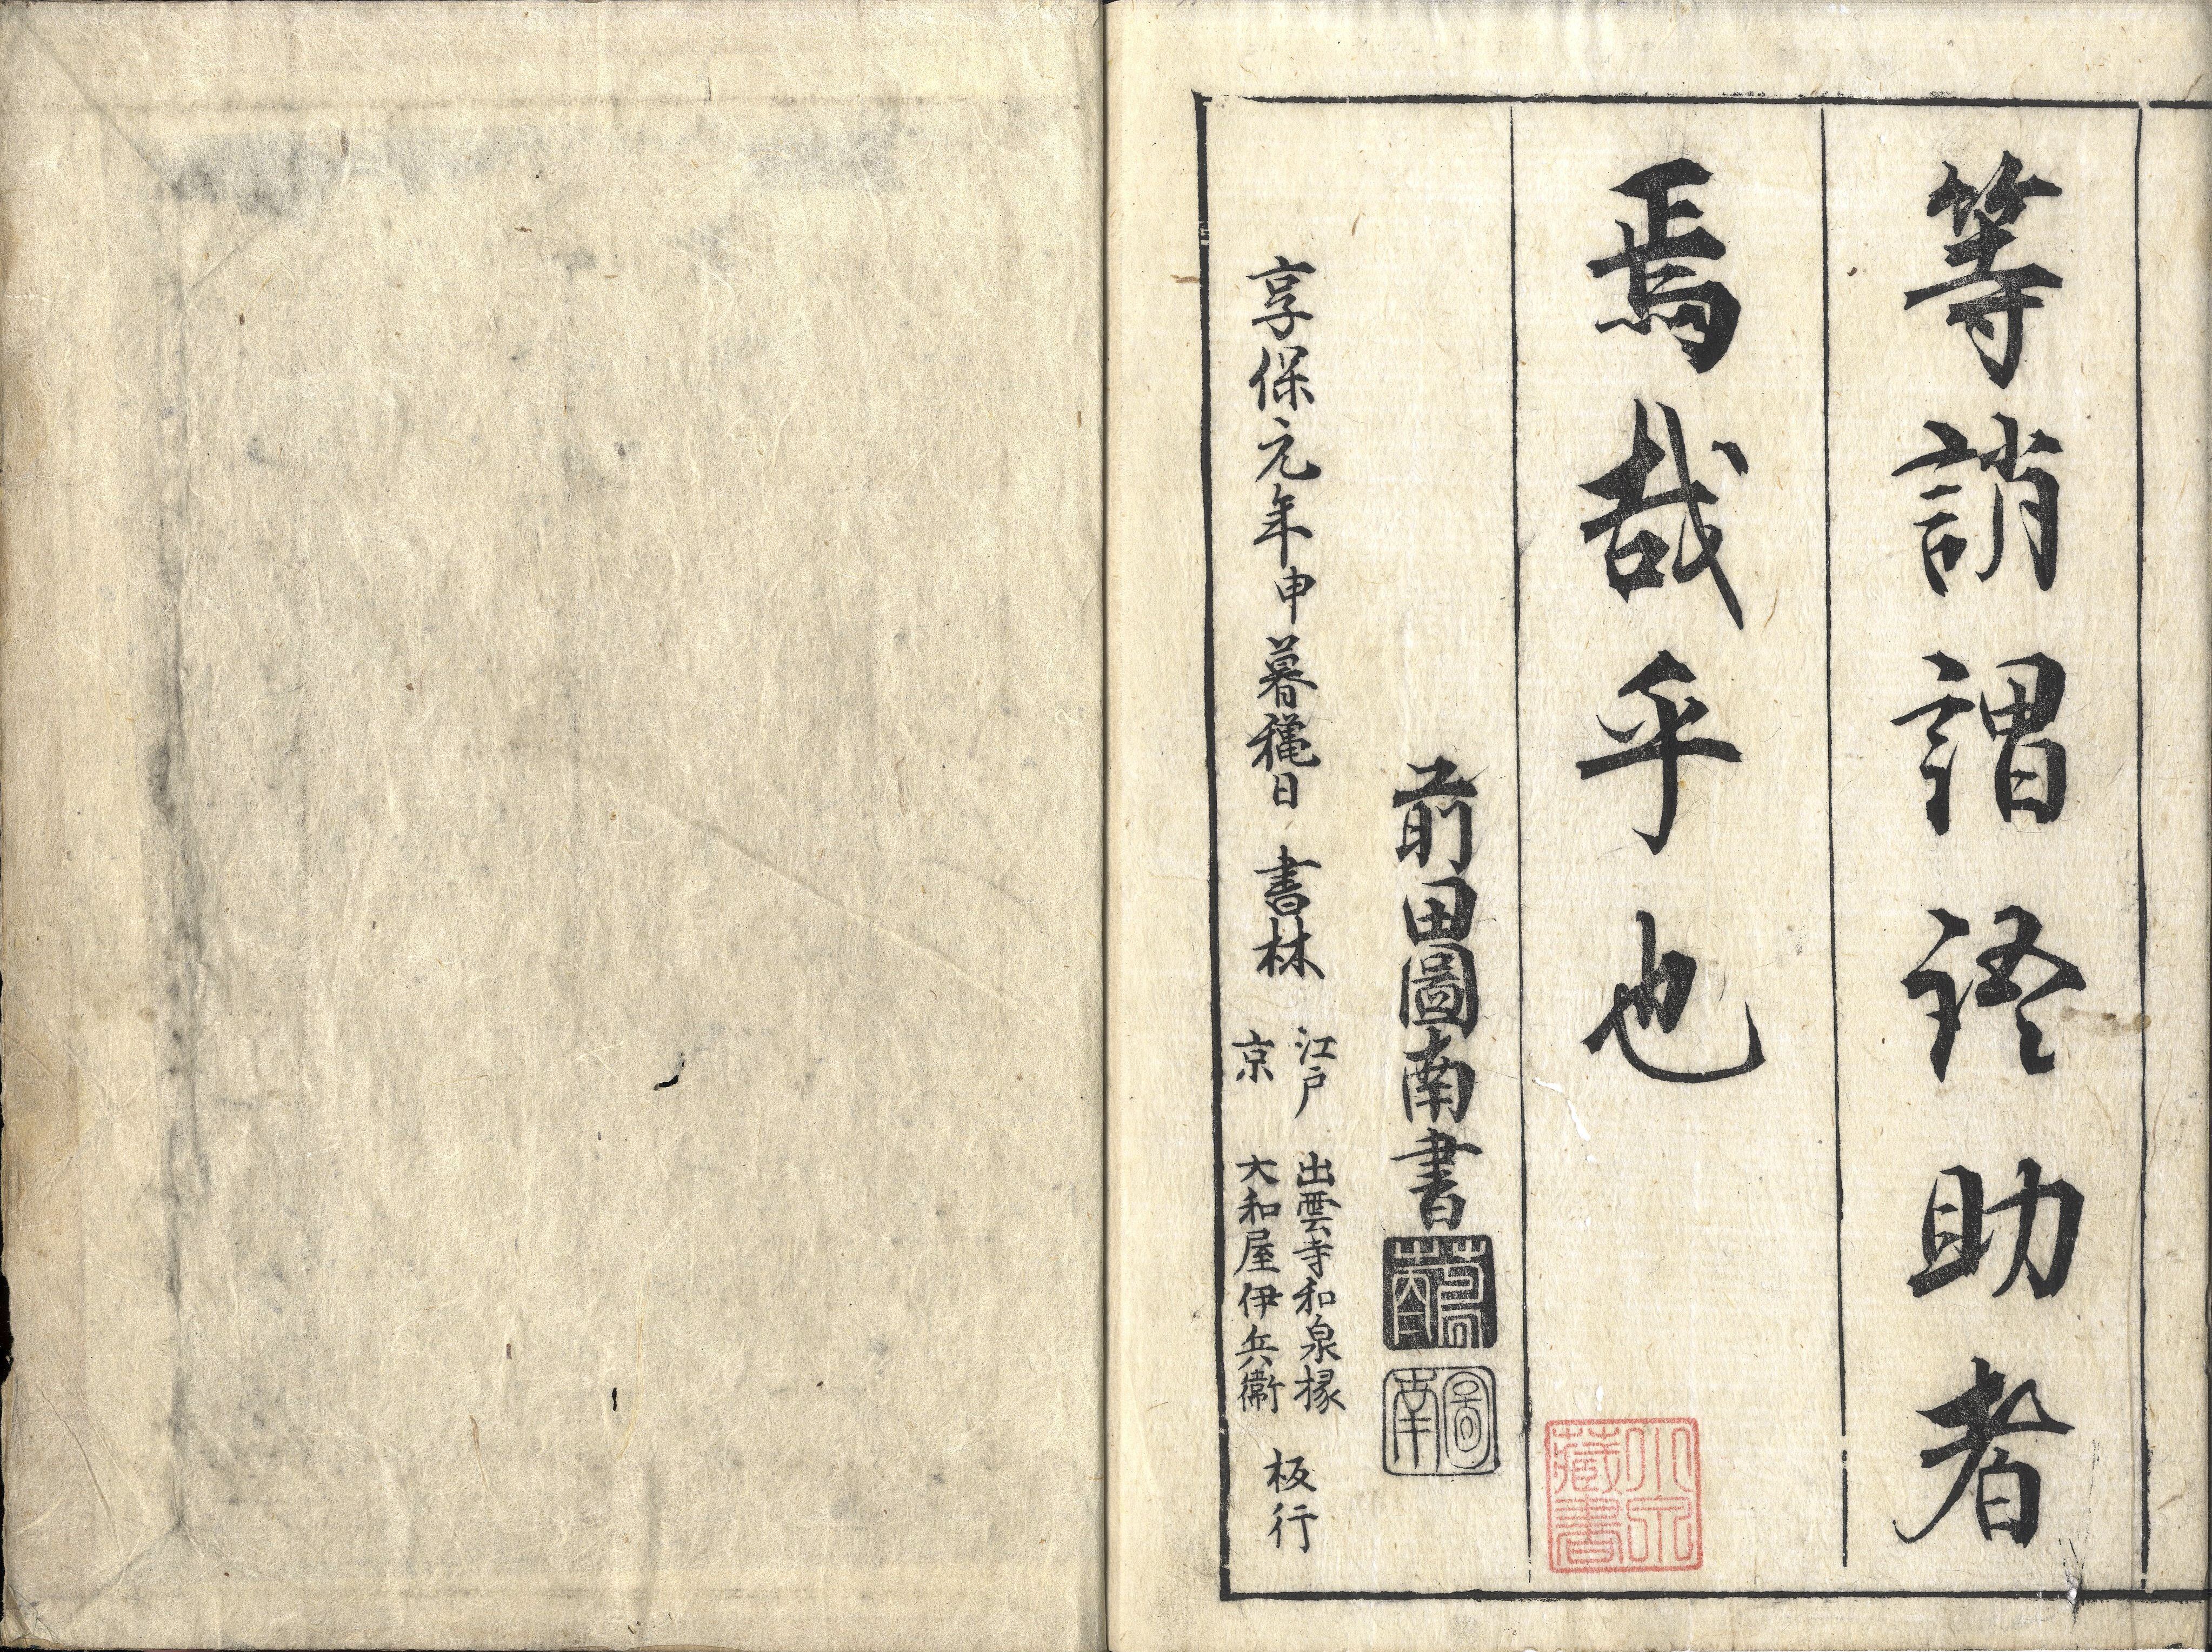 等誚謂語助者
焉哉乎也
前田圖南書
圖南
藏書
享保元年申暮穐日 書林
江戸 出雲寺和泉掾
京 大和屋伊兵衞
板行